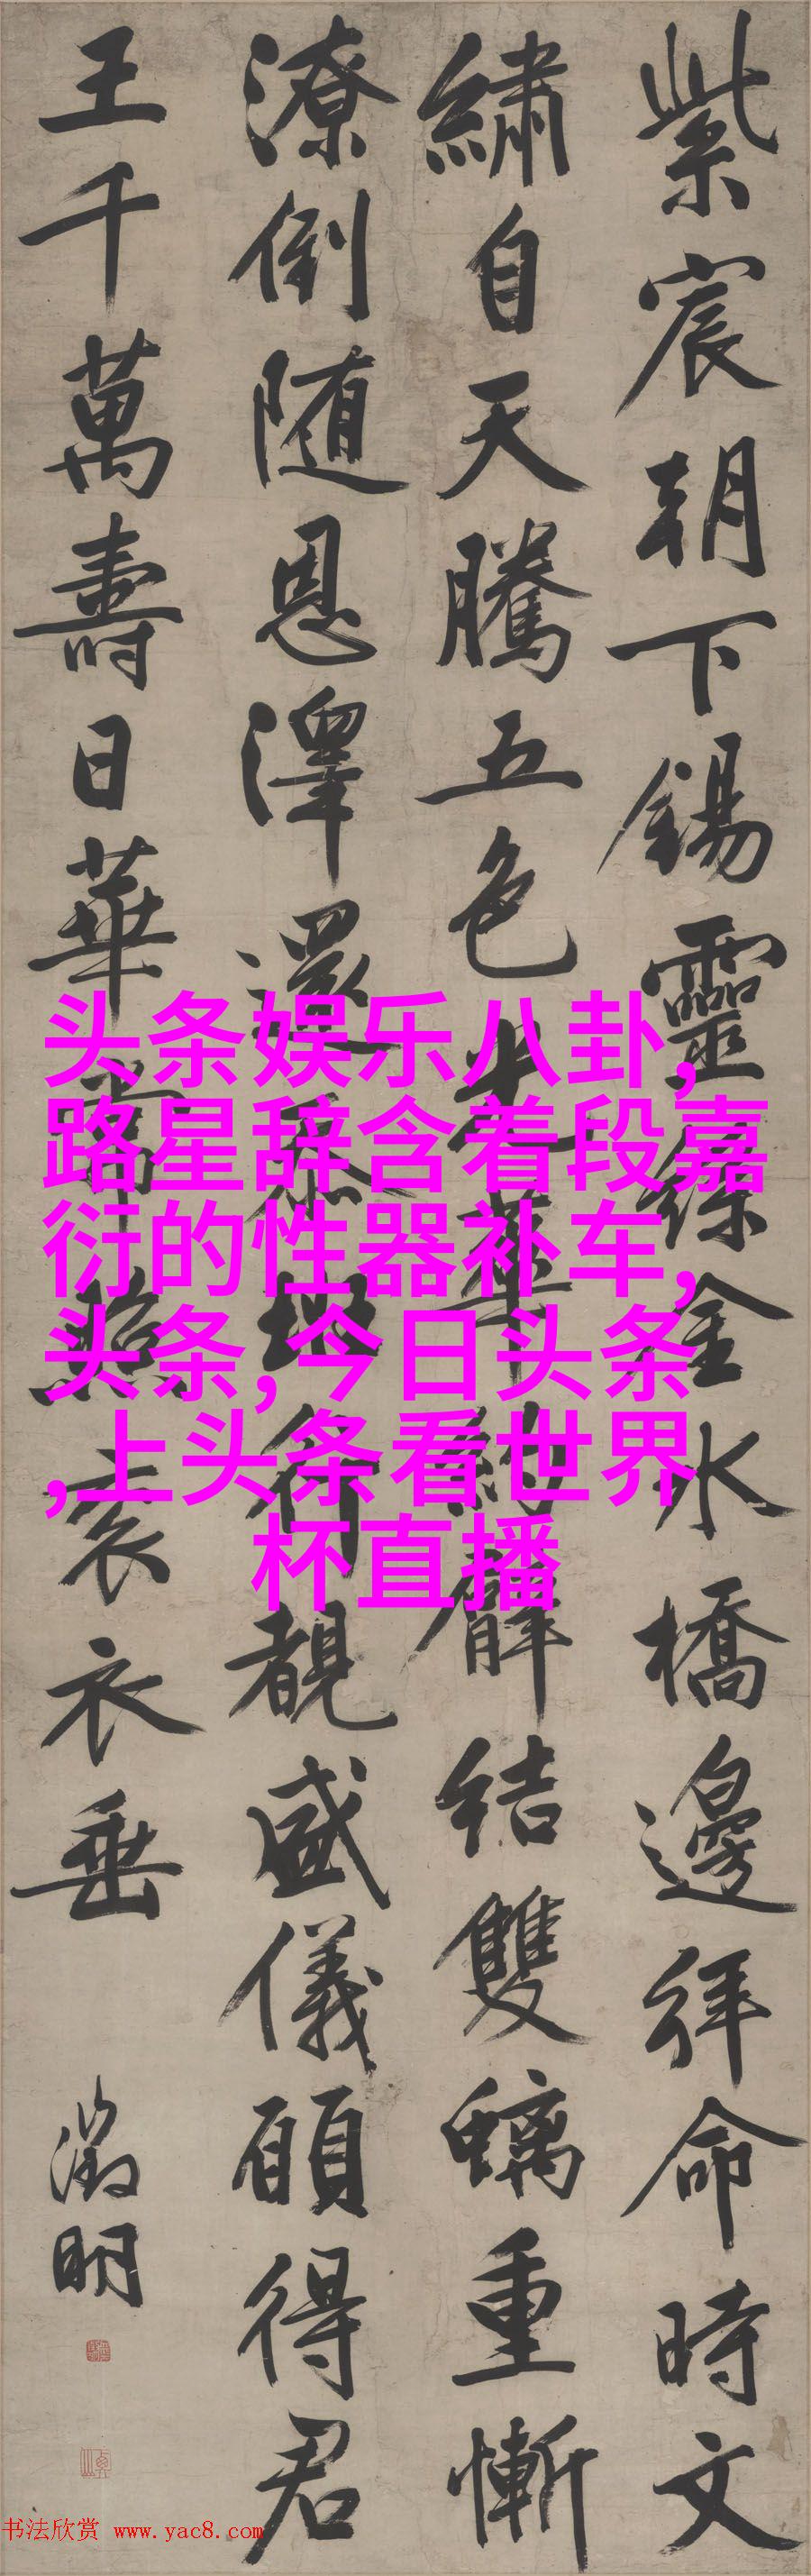 紫宸朝下錫靈絲金水橋邊拜命時文
繡自天騰五色光華約臂結雙螭重慚
潦倒随恩澤還忝班行覩盛儀願得君
王千萬壽日華常照衮衣垂
徵明
头条娱乐八卦,
路星辞含着段嘉
衍的性器补车,
头条,今日头条
,上头条看世界
杯直播
书法欣赏 www.yac8.com